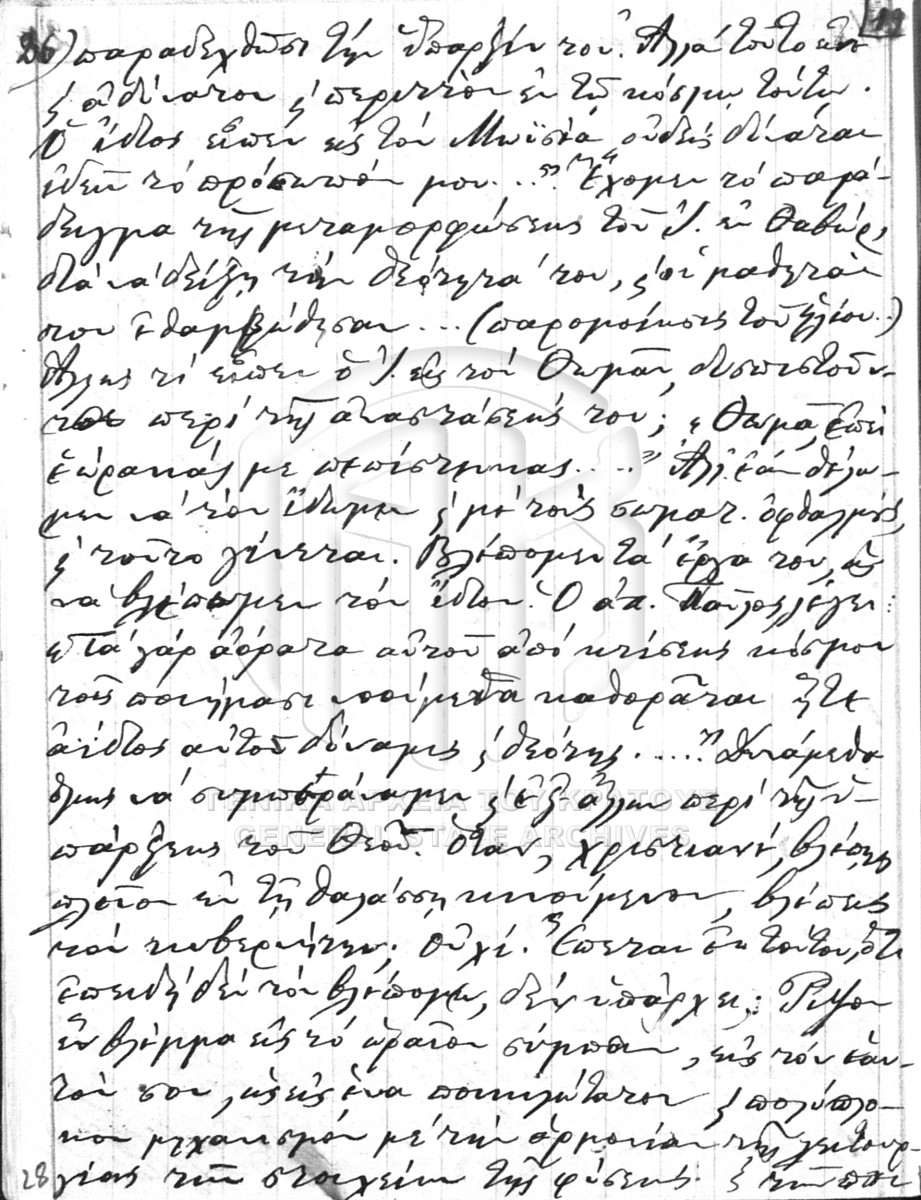 26) παραδεχθῶσι τὴν ὕπαρξίν του. Ἀλλὰ τοῦτο εἶνε 19
ϗ ἀδύνατον ϗ περιττὸν ἐν τῷ κόσμῳ τούτῳ.
Ὁ ἴδιος εἶπεν εἰς τὸν Μωϋσέα „οὐδεὶς δύναται
ἰδεῖν τὸ πρόσωπόν μου...". Ἔχομεν τὸ παρά-
δειγμα τῆς μεταμορφώσεως τοῦ Ἰ. ἐν Θαβώρ,
διὰ νὰ δείξῃ τὴν θεότητά του, ϗ οἱ μαθηταί
του ἐθαμβώθησαν... (παρομοίωσις τοῦ ἡλίου..)
Ἄλλως τί εἶπεν ὁ Ἰ. εἰς τὸν Θωμᾶν, δυσπιστοῦν-
τα περὶ τῆς ἀναστάσεώς του; „Θωμᾶ, ἐπεὶ
ἑώρακάς με πεπίστευκας....." Ἀλλ' ἐὰν θέλω-
μεν νὰ τὸν ἴδωμεν ϗ μὲ τοὺς σωματ. ὀφθαλμούς,
ϗ τοῦτο γίνεται. Βλέπομεν τὰ ἔργα του, ὡς
νὰ βλέπωμεν τὸν ἴδιον. Ὁ ἀπ. Παῦλος λέγει:
„Τὰ γὰρ ἀόρατα αὐτοῦ ἀπὸ κτίσεως κόσμου
τοῖς ποιήμασι νοούμενα καθορᾶται ἥ τε
ἀΐδιος αὐτοῦ δύναμις ϗ θεότης....." Δυνάμεθα
ὅμως νὰ συμπεράνωμεν ϗ ἐξ ἄλλων περὶ τῆς ὑ-
πάρξεως τοῦ Θεοῦ. Ὅταν, χριστιανέ, βλέπῃς
πλοῖον ἐν τῇ θαλάσσῃ κινούμενον, βλέπεις
τὸν κυβερνήτην; Οὐχί. Ἕπεται ἐκ τούτου, ὅτι
ἐπειδὴ δὲν τὸν βλέπομεν, δὲν ὑπάρχει; Ρῖψον
ἓν βλέμμα εἰς τὸ ὡραῖον σύμπαν, εἰς τὸν ἑαυ-
τόν σου, ὡς εἰς ἕνα ποικιλώτατον ϗ πολύπλο-
κον μηχανισμὸν μὲ τὴν ἁρμονίαν τῆς λειτουρ-
28 γίας τῶν στοιχείων τῆς φύσεως ϗ τῶν
ΓΕΝΙΚΑ ΑΡΧΕΙΑ ΤΟΥ ΚΡΑΤΟΥΣ
GENERAL STATE ARCHIVES